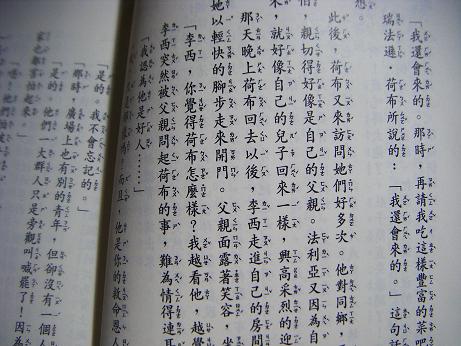 「我還會來的。那時，再請我吃這樣豐富的菜吧
瑞法遜·荷布所說的：「我還會來的。」這句話
想。
此後，荷布又來訪問她們好多次。他對同鄉，
怕，親切得好像是自己的父親。法利亞又因為自
來，就好像自己的兒子回來一樣，興高采烈的迎
那天晚上荷布回去以後，李西走進自己的房間
她以輕快的腳步走來開門。父親面露著笑容，坐
「李西，你覺得荷布怎麼樣？我越看他，越覺
李西突然被父親問起荷布的事，難為情得連耳
「我認為他是好人……」
而且，他是你的救命恩人
「是的。我不會忘記的。」
「那時，廣場上也有別的青年，但卻沒有一個人
是的。他們一大群人只是旁觀叫喊罷了！因為